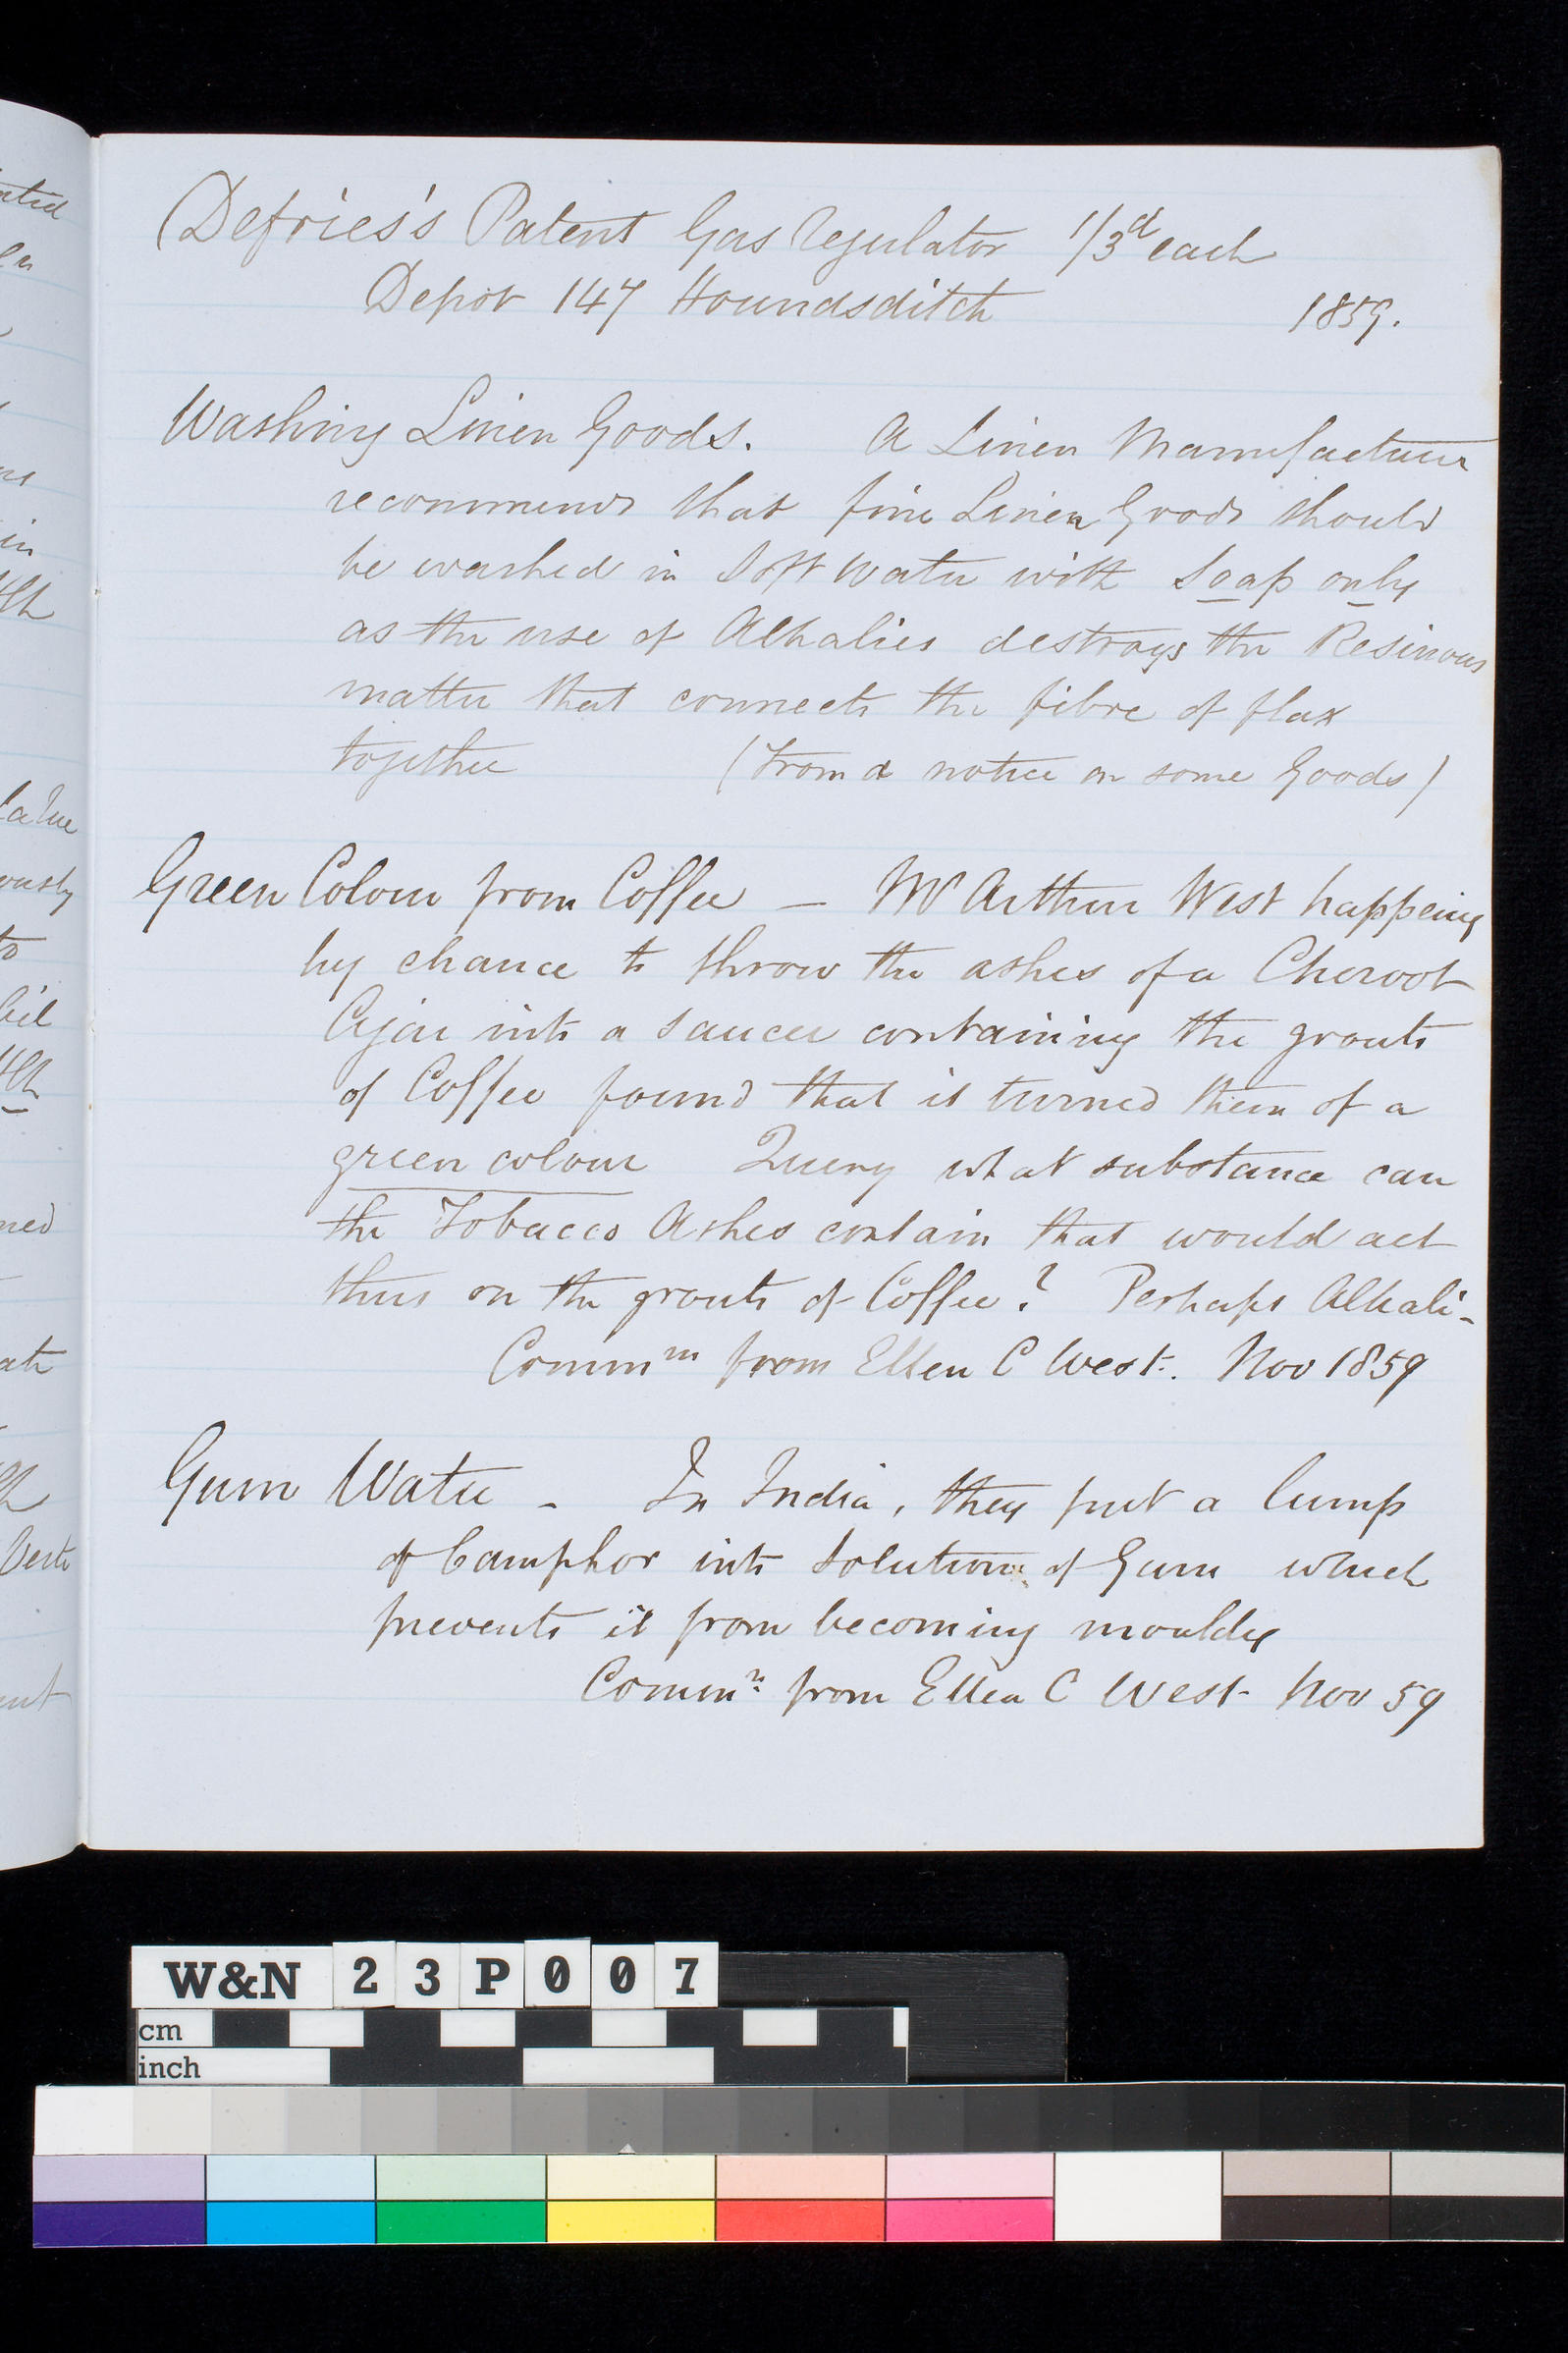 Defries's Patent Gas Regulator 1/3d each
Depot 147 Houndsditch 1859.
Washing Linen Goods. A Linen Manufacturer
recommends that fine Linen Goods should
be washed in Soft Water with Soap only
as the use of Alkalies destroys the Resinous
matter that connects the fibre of flax
together (From a notice on some Goods)
Green Colour from Coffee — Mr Arthur West happening
by chance to throw the ashes of a Cheroot
Cigar into a saucer containing the grouts
of Coffee found that it turned them of a
green colour Query what substance can
the Tobacco Ashes contain that would act
thus on the grouts of Coffee? Perhaps Alkali-
Commn from Ellen C West. Nov 1859
Gum Water - In India, they put a lump
of Camphor into solution of Gum which
prevents it from becoming mouldy
Commn from Ellen C West Nov 59
W&N 23P007
cm
inch